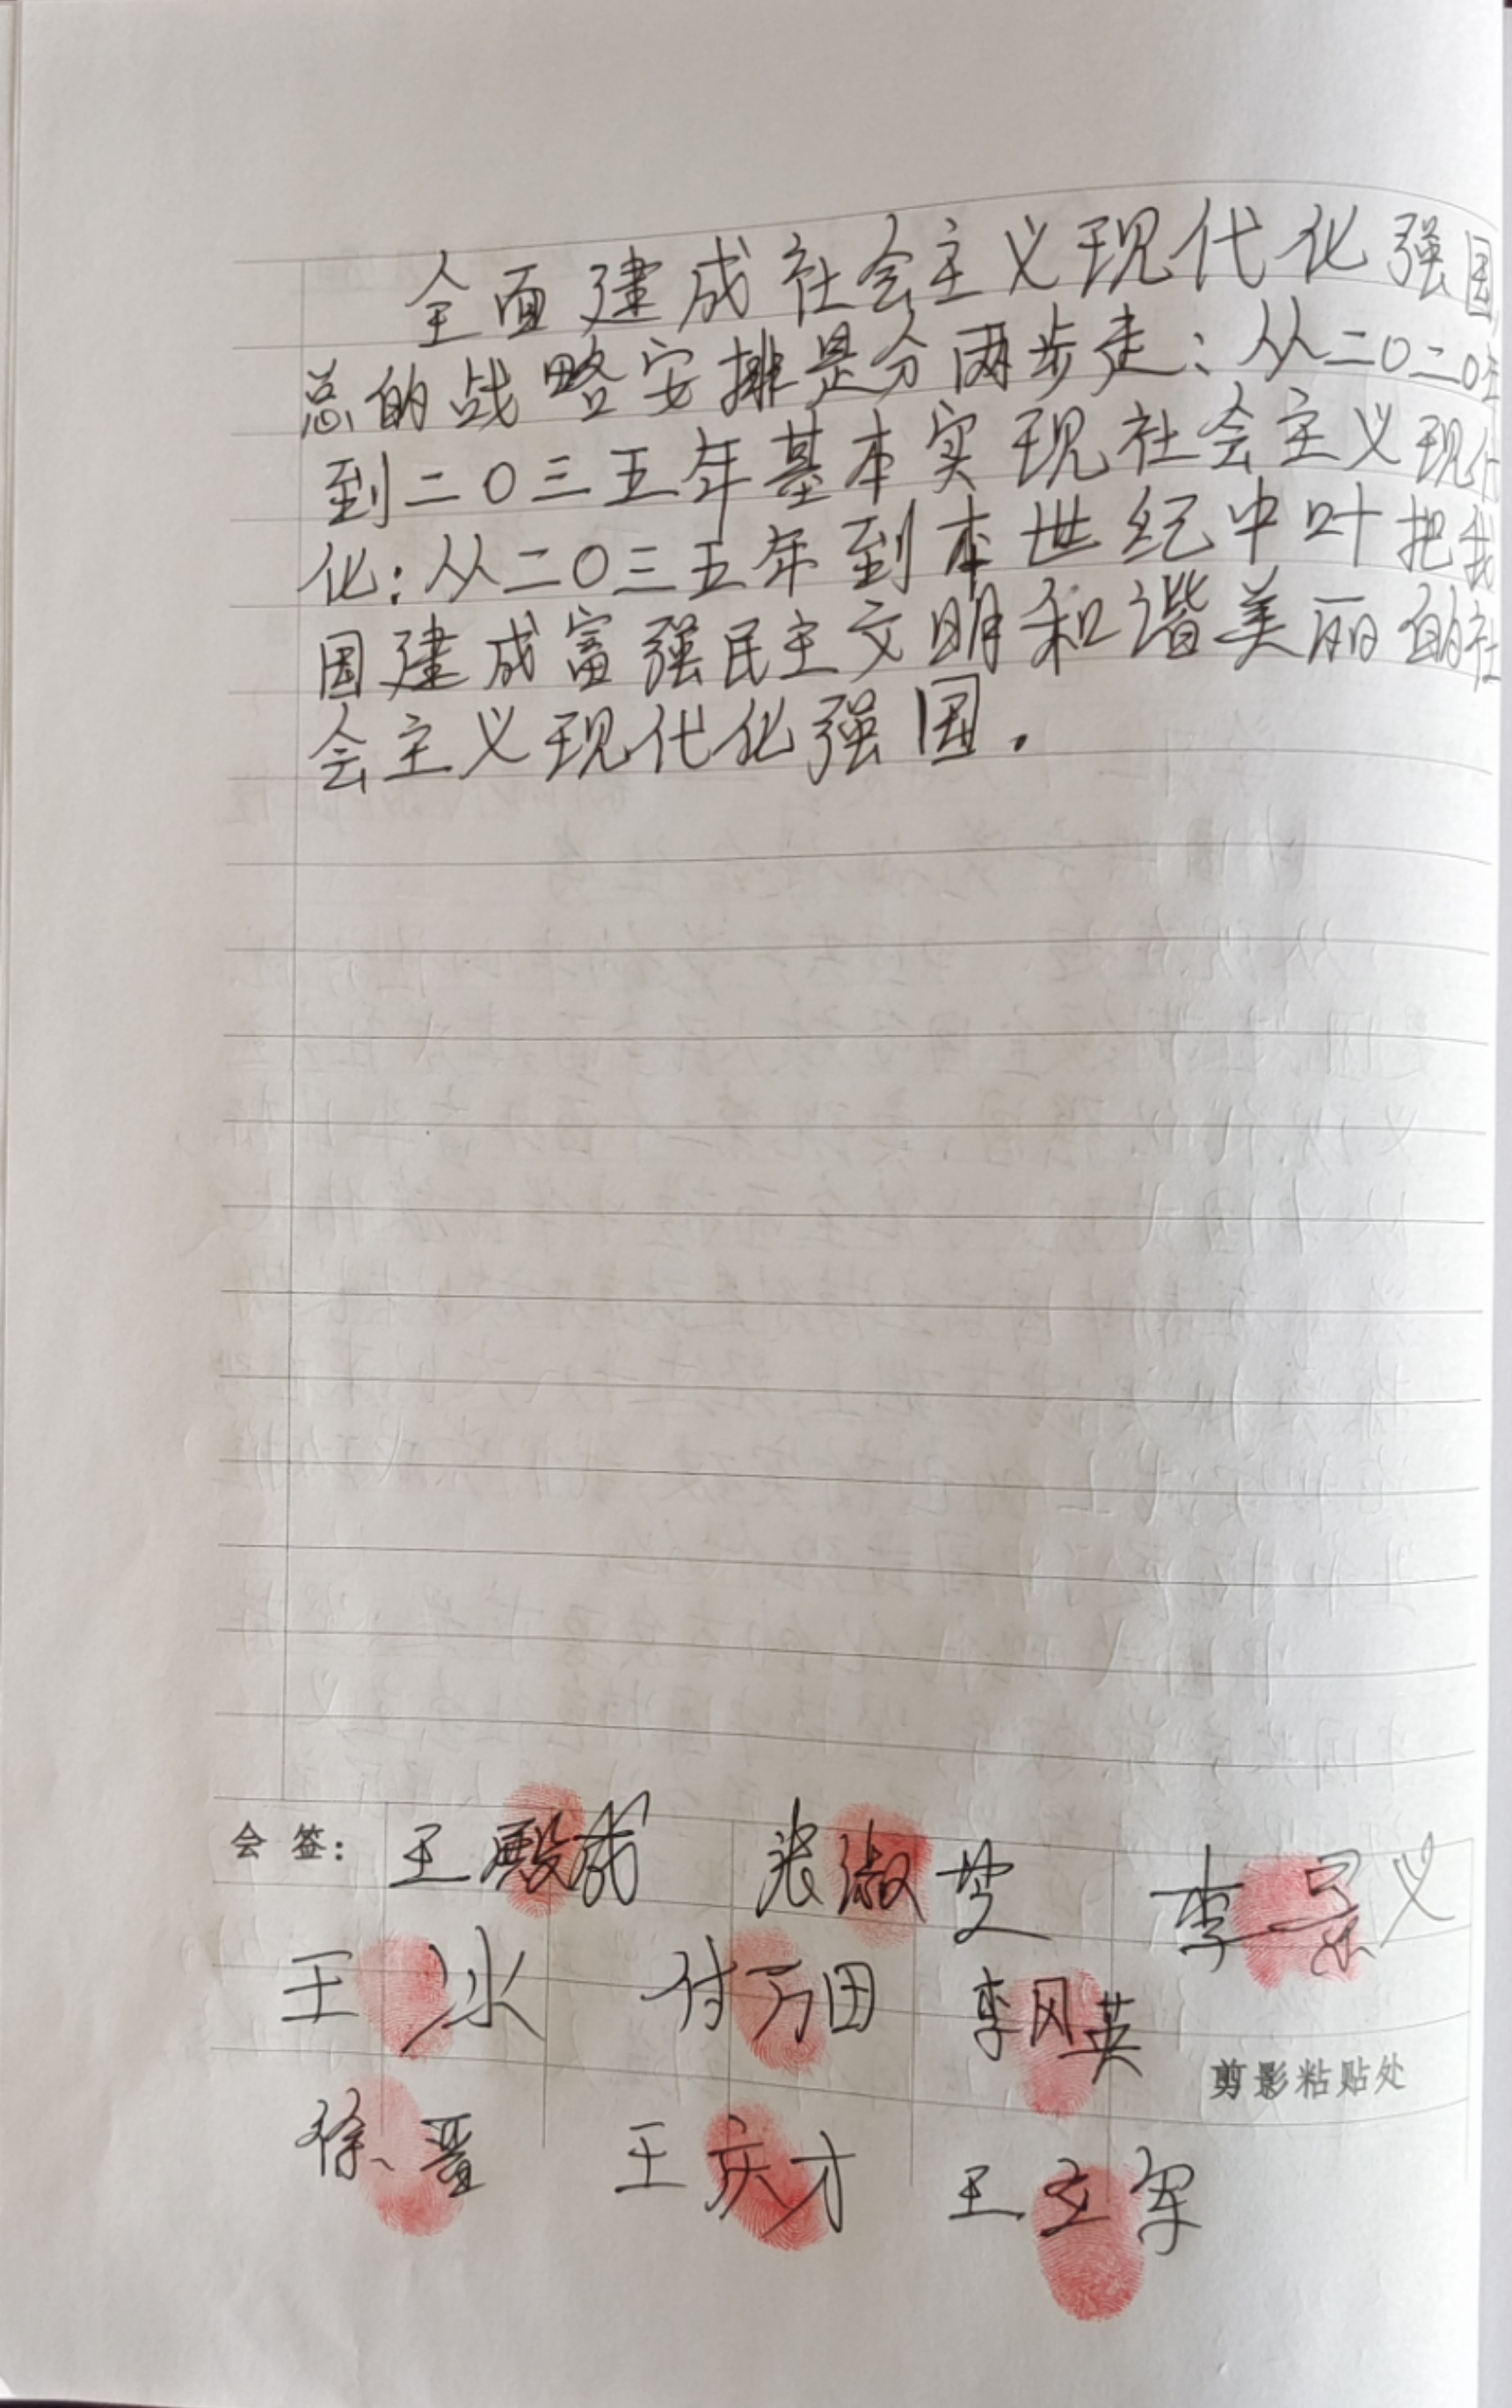 全面建成社会主义现代化强国,
总的战略安排是分两步走:从二〇二〇年
到二〇三五年基本实现社会主义现代
化:从二〇三五年到本世纪中叶把我
国建成富强民主文明和谐美丽的社
会主义现代化强国.
会 签: 王殿成 张淑芝 李景义
王冰 付万田 李风英
剪影粘贴处
徐晋 王庆才 王立军